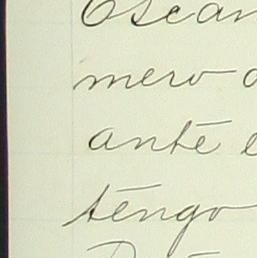 Oscar
mero
ante e
tengo